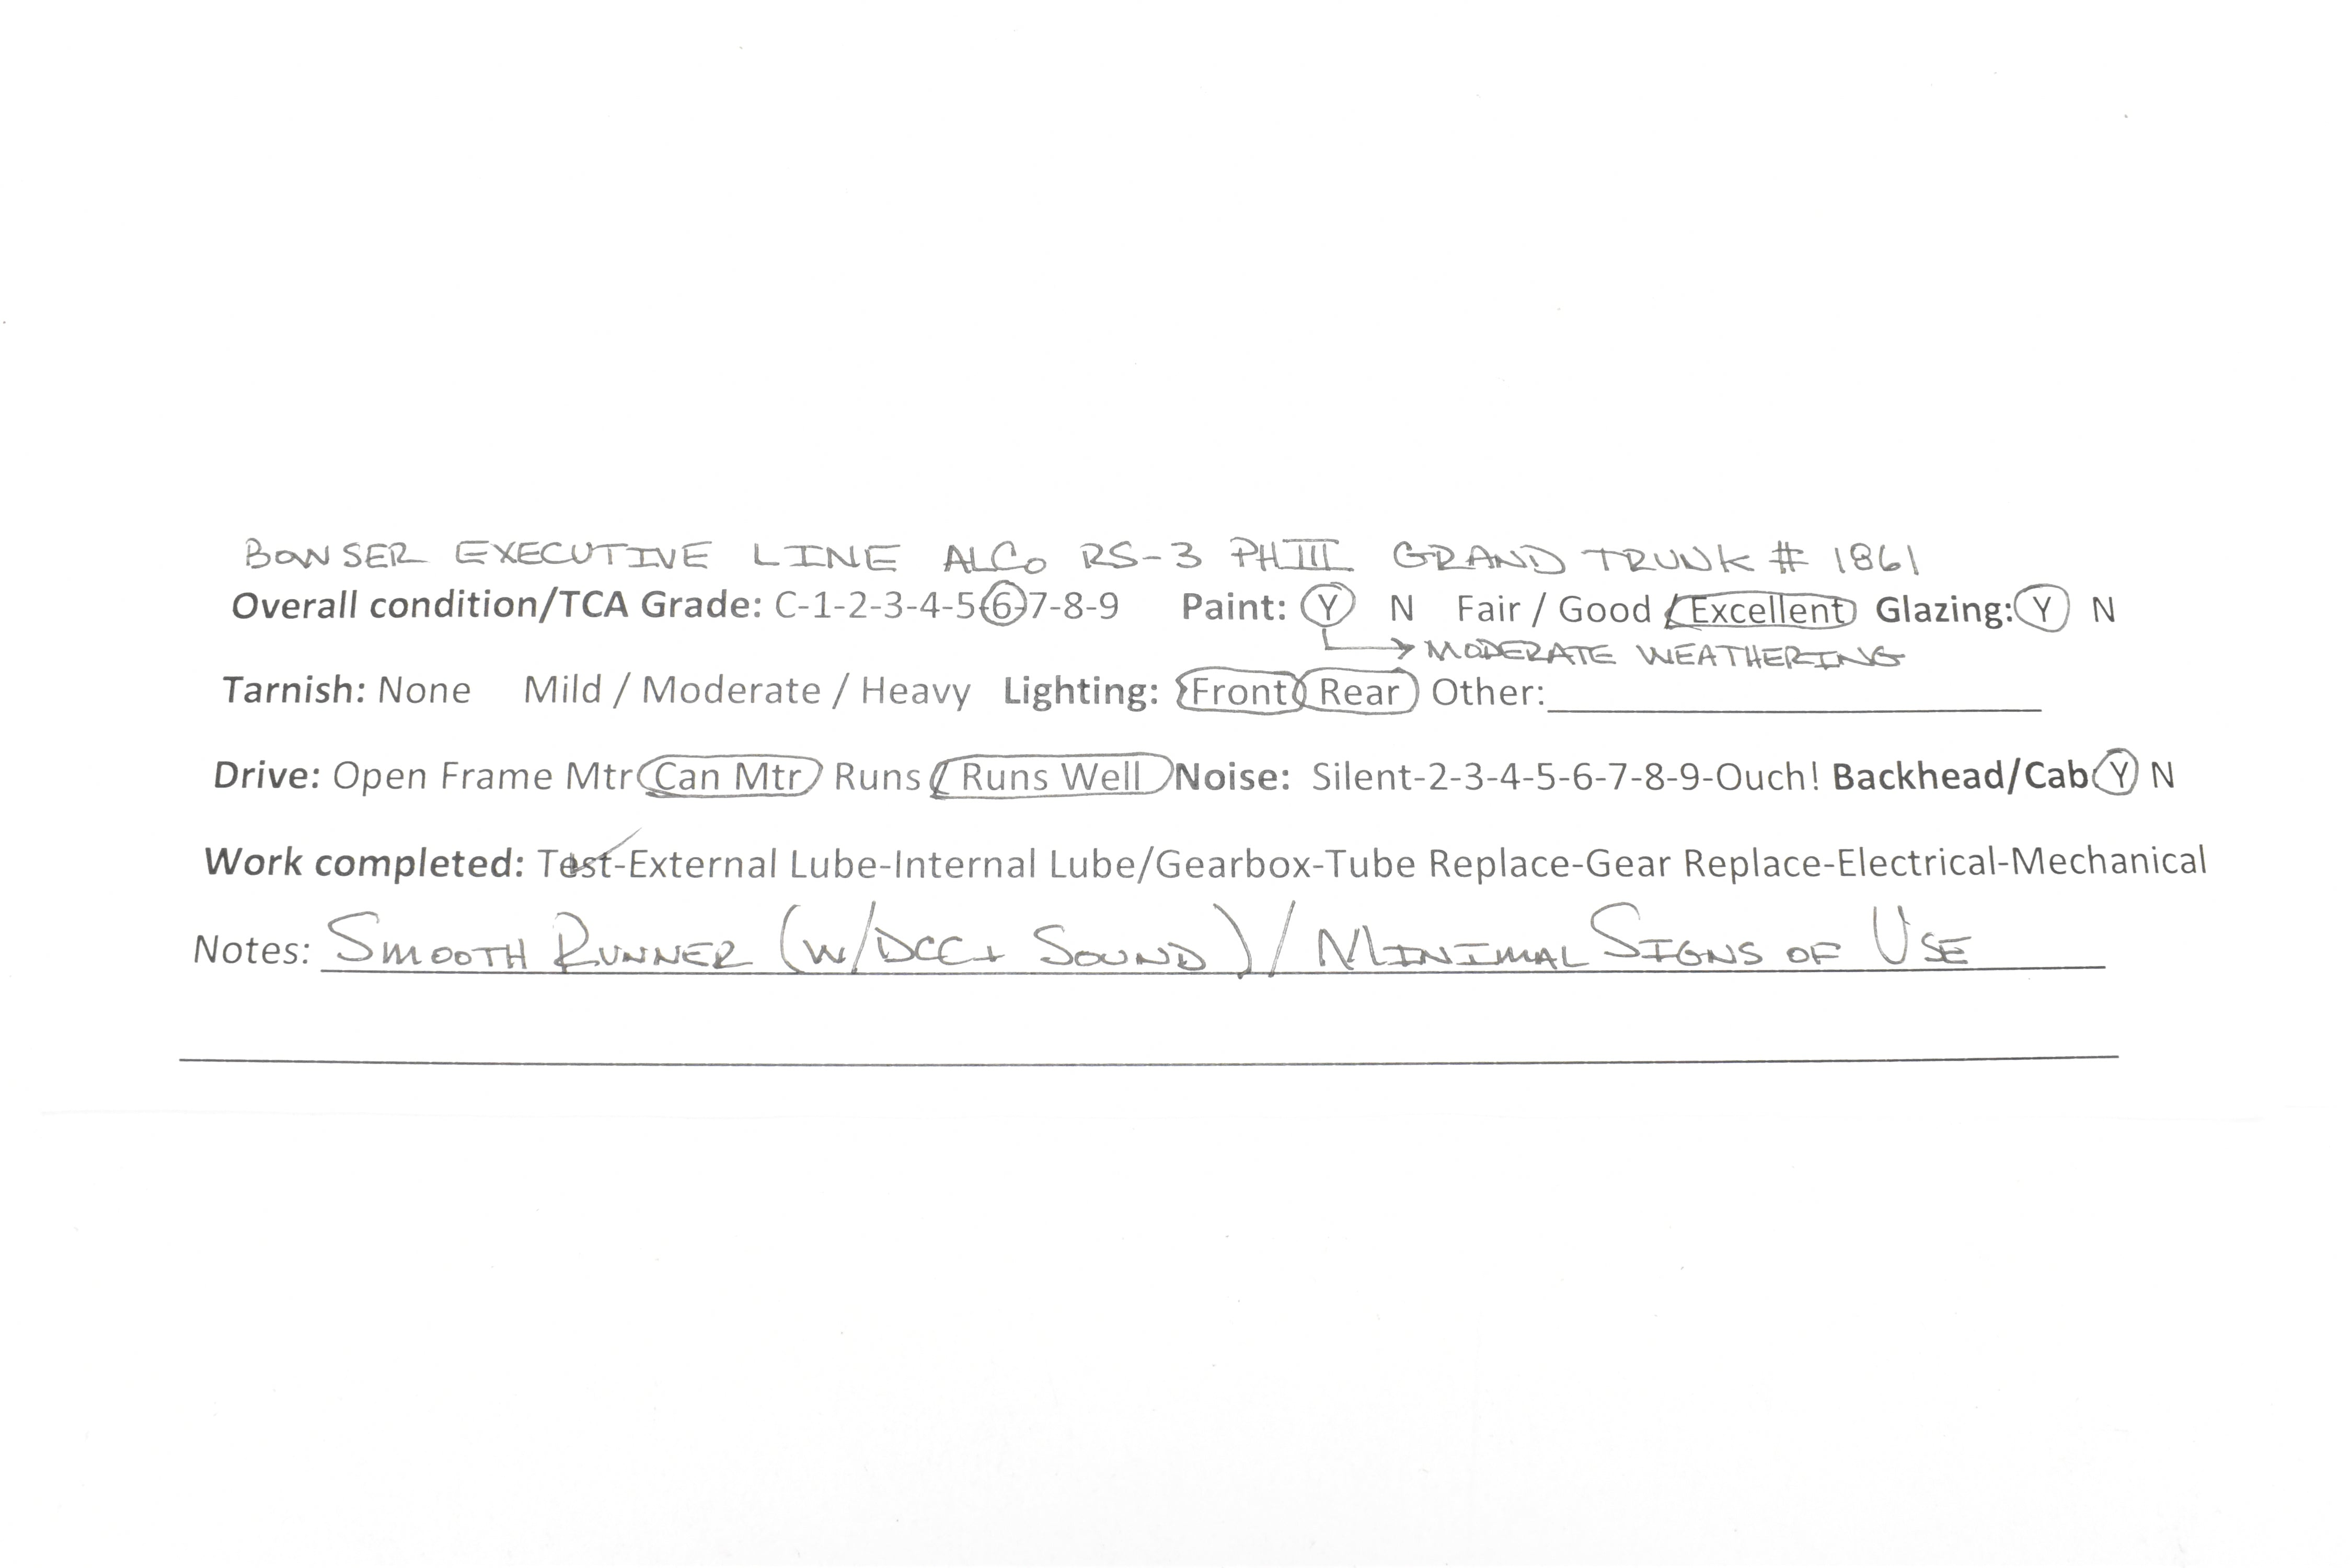 BOWSER EXECUTIVE LINE ALCo RS-3 PH III GRAND TRUNK # 1861
Overall condition/TCA Grade: C-1-2-3-4-5-6-7-8-9 Paint: Y N Fair / Good / Excellent Glazing: Y N
MODERATE WEATHERING
Tarnish: None Mild / Moderate / Heavy Lighting: Front / Rear Other:
Drive: Open Frame Mtr / Can Mtr Runs / Runs Well Noise: Silent-2-3-4-5-6-7-8-9-Ouch! Backhead/Cab Y N
Work completed: Test-External Lube-Internal Lube/Gearbox-Tube Replace-Gear Replace-Electrical-Mechanical
Notes: SMOOTH RUNNER (W/DCC+ SOUND) / MINIMAL SIGNS OF USE